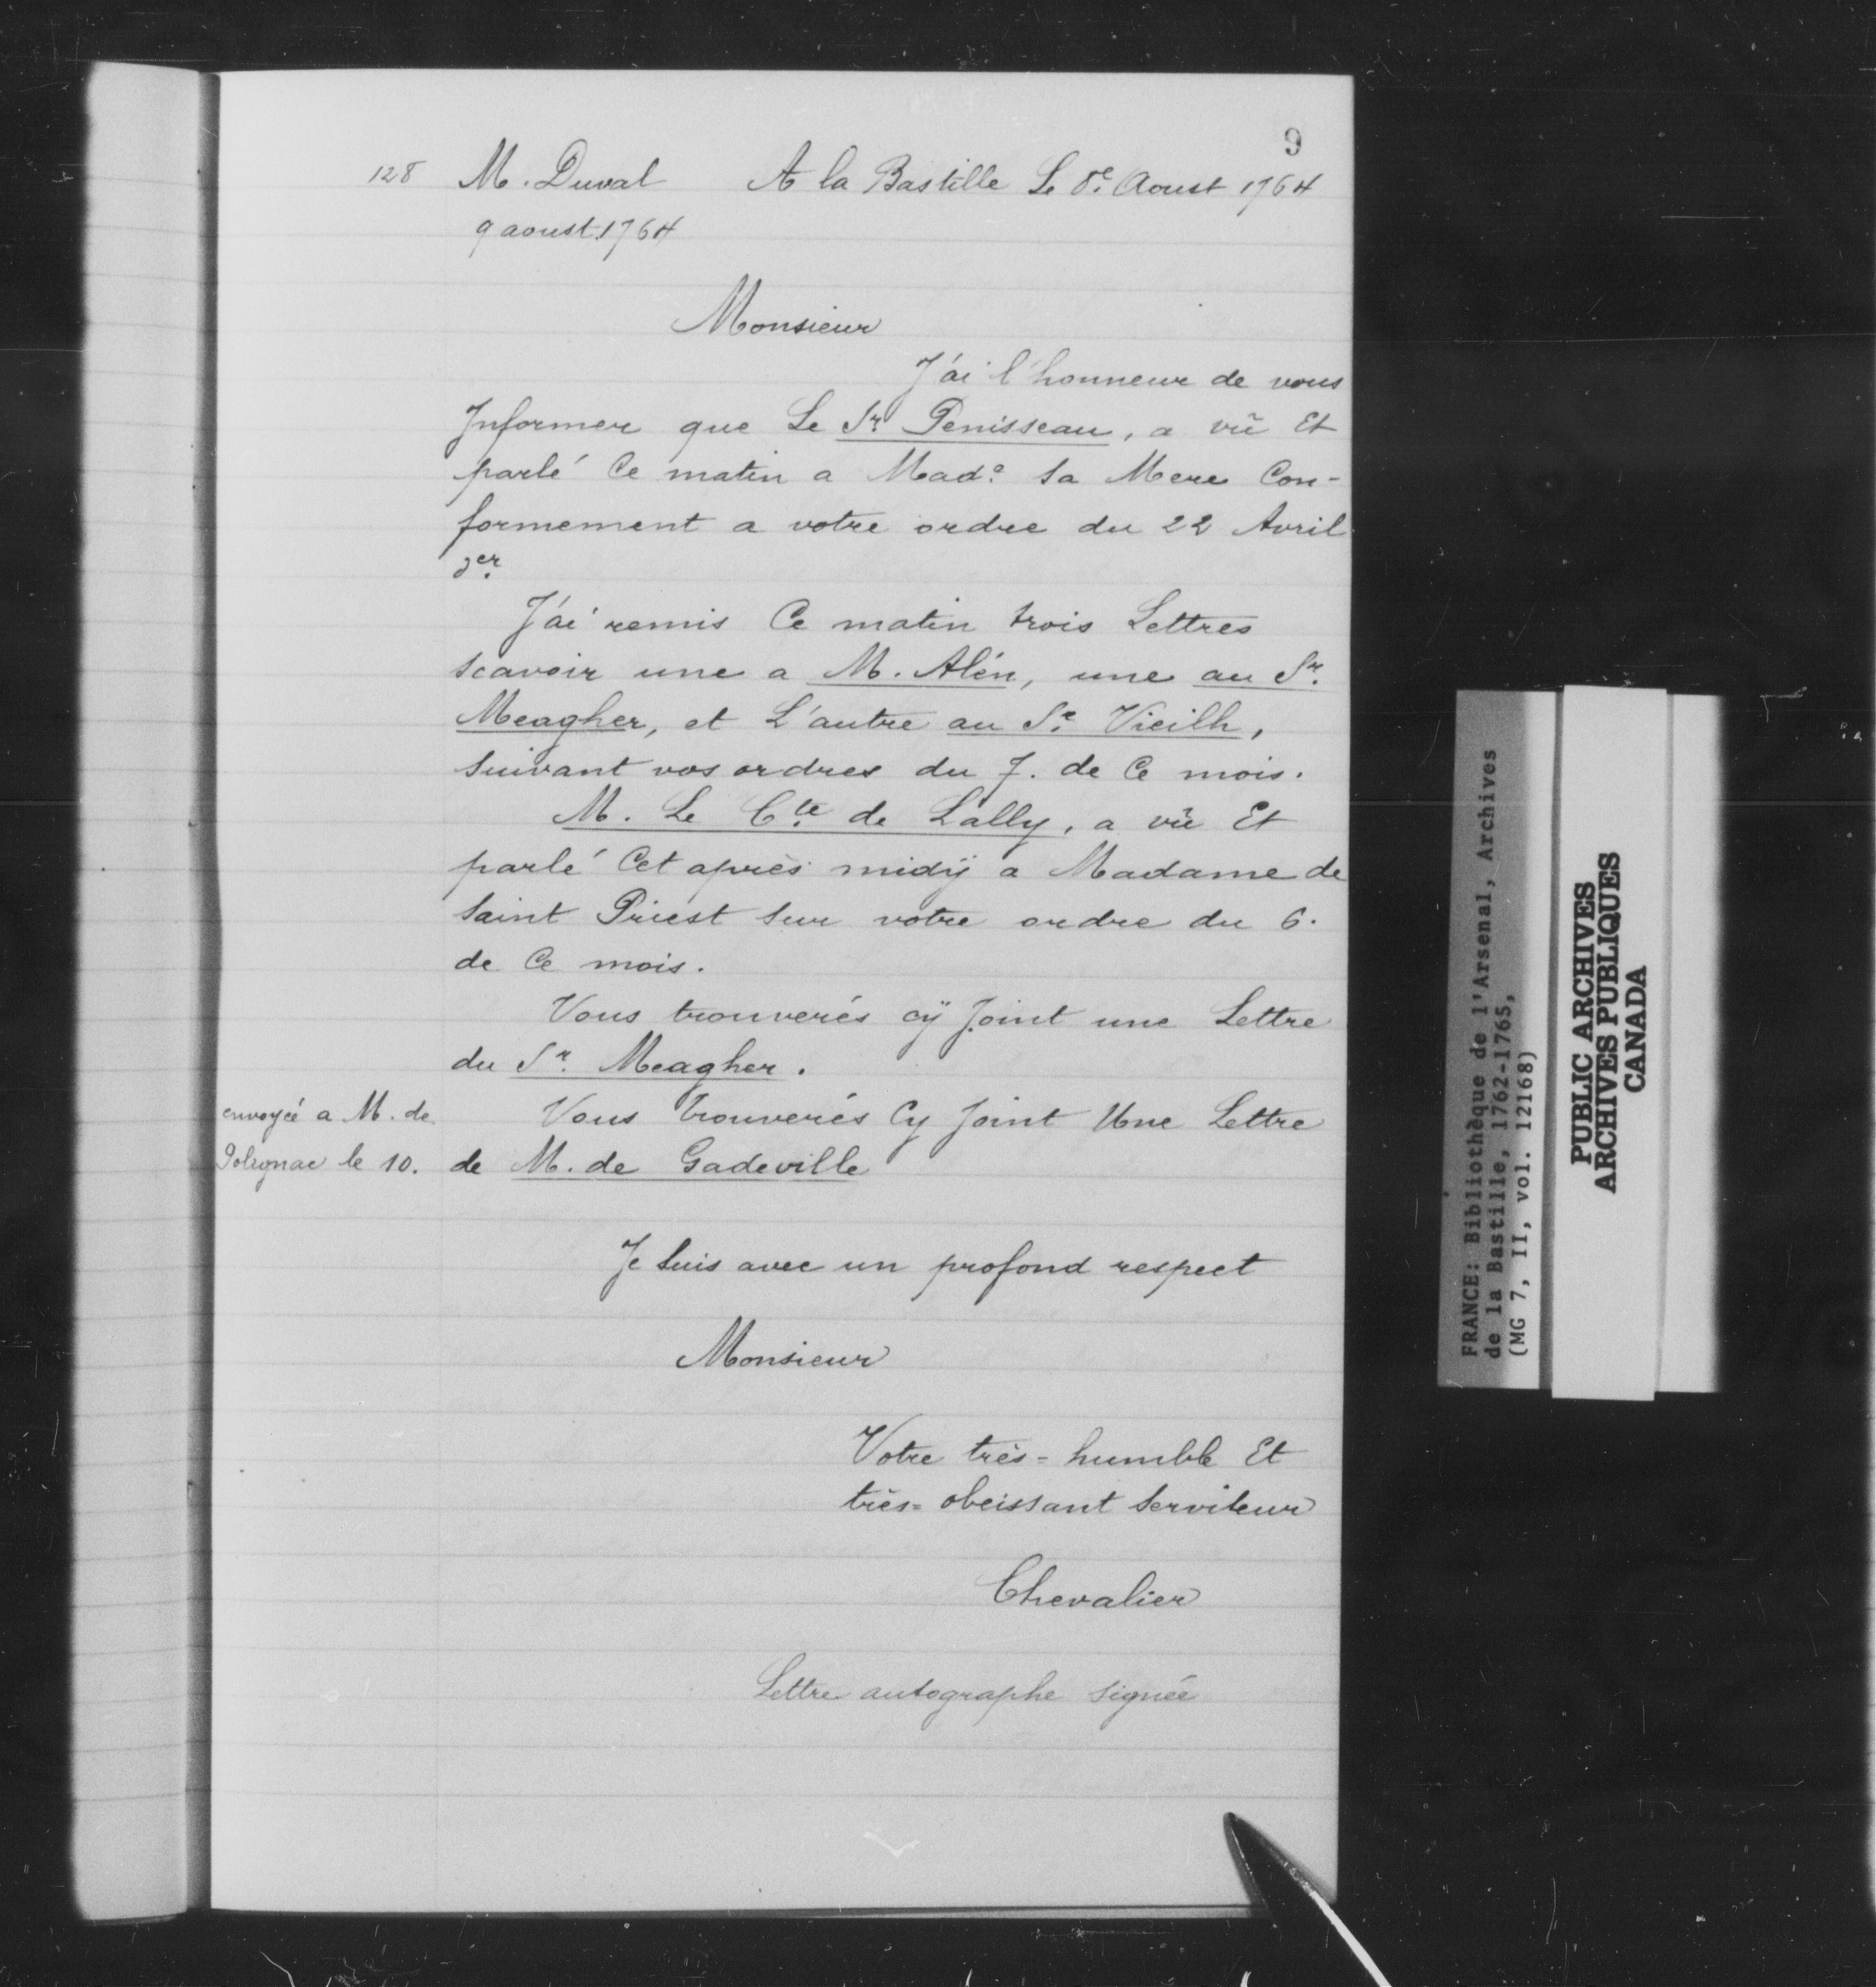 9
128 M. Duval A la Bastille Le 8e. Aoust 1764
9 aoust 1764
Monsieur
J'ai l'honneur de vous
Informer que Le Sr. Penisseau, a vû Et
parlé Ce matin a Made. Sa Mere Con-
formement a votre ordre du 22 Avril
der.
J'ai remis Ce matin trois Lettres
scavoir une a M. Alén, une au Sr.
Meagher, et L'autre au Sr. Vieilh,
suivant vos ordres du 7. de Ce mois.
M. Le Cte. de Lally, a vû Et
parlé Cet après midÿ a Madame de
Saint Priest Sur votre ordre du 6.
de Ce mois.
Vous trouverés cÿ Joint une Lettre
du Sr. Meagher.
envoyée a M. de
Polignac le 10.
Vous trouverés Cy Joint Une Lettre
de M. de Gadeville
Je Suis avec un profond respect
Monsieur
Votre très-humble Et
très-obeissant Serviteur
Chevalier
Lettre autographe signée
FRANCE: Bibliothèque de l'Arsenal, Archives
de la Bastille, 1762-1765,
(MG 7, II, vol. 12168)
PUBLIC ARCHIVES
ARCHIVES PUBLIQUES
CANADA